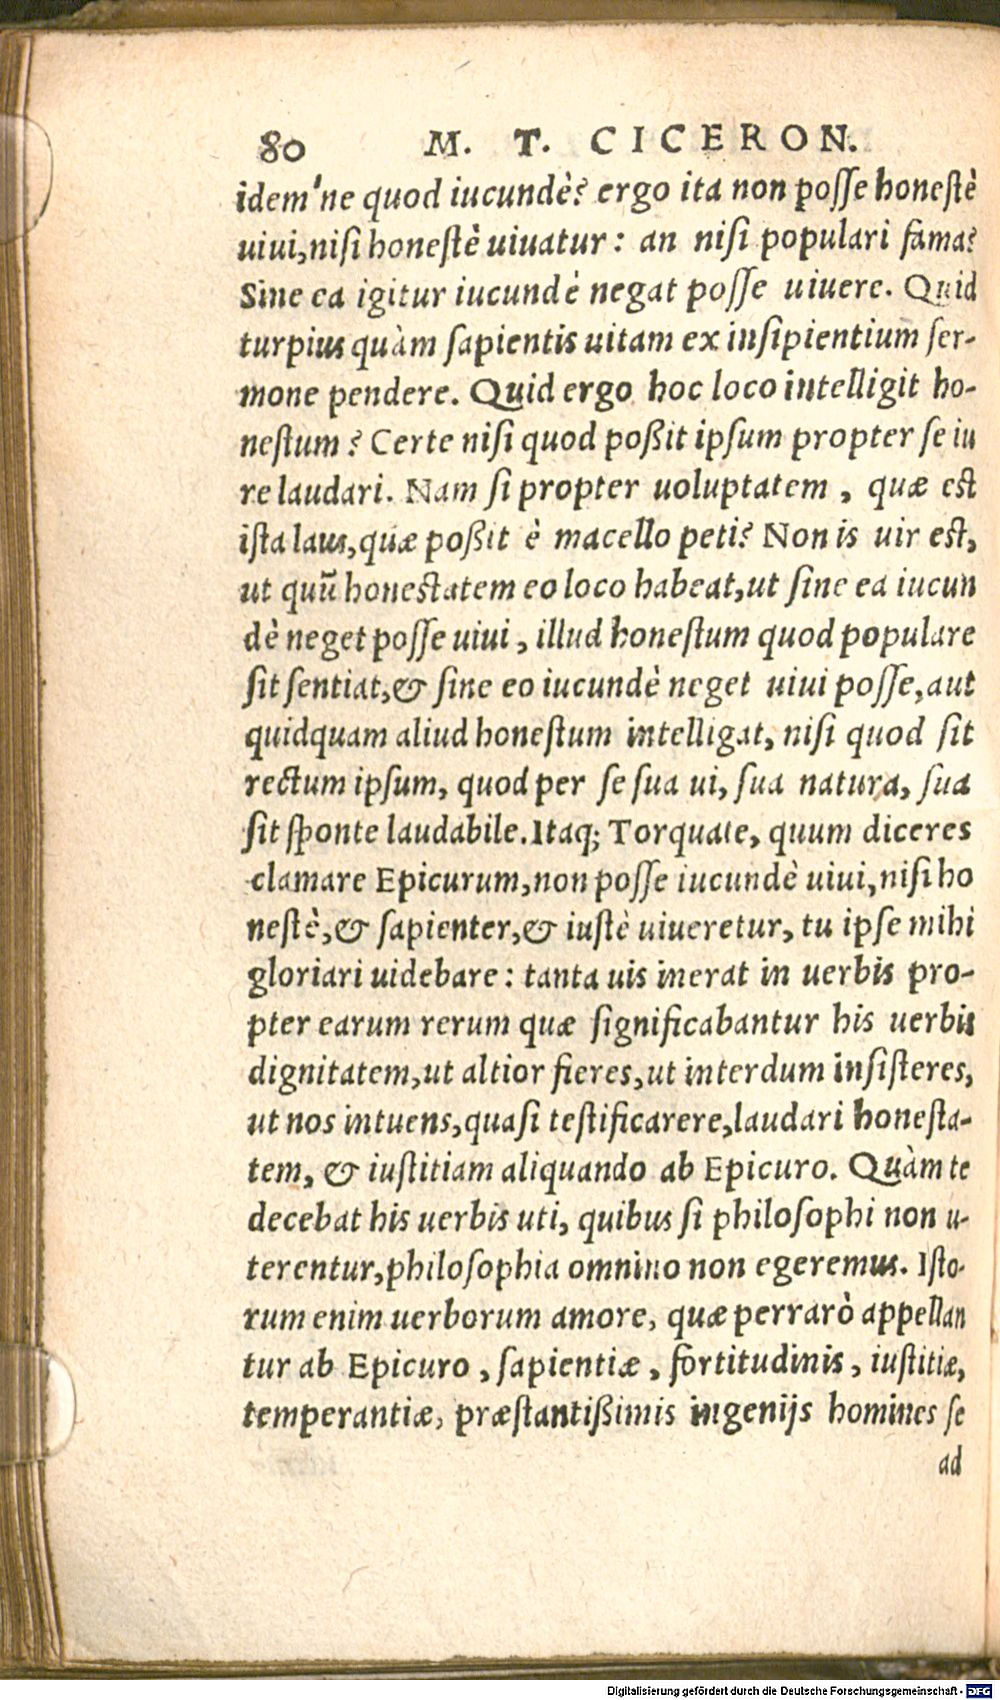 80 M. T. CICERON.
idem'ne quod iucundè? ergo ita non posse honestè
uiui, nisi honestè uiuatur: an nisi populari fama?
Sine ea igitur iucundè negat posse uiuere. Quid
turpius quàm sapientis uitam ex insipientium ser-
mone pendere. Quid ergo hoc loco intelligit ho-
nestum? Certe nisi quod poßit ipsum propter se iu
re laudari. Nam si propter uoluptatem, quæ est
ista laus, quæ poßit è macello peti? Non is uir est,
ut quū honestatem eo loco habeat, ut sine ea iucun
dè neget posse uiui, illud honestum quod populare
sit sentiat, & sine eo iucundè neget uiui posse, aut
quidquam aliud honestum intelligat, nisi quod sit
rectum ipsum, quod per se sua ui, sua natura, sua
sit sponte laudabile. Itaq; Torquate, quum diceres
clamare Epicurum, non posse iucundè uiui, nisi ho
nestè, & sapienter, & iustè uiueretur, tu ipse mihi
gloriari uidebare: tanta uis inerat in uerbis pro-
pter earum rerum quæ significabantur his uerbis
dignitatem, ut altior fieres, ut interdum insisteres,
ut nos intuens, quasi testificarere, laudari honesta-
tem, & iustitiam aliquando ab Epicuro. Quàm te
decebat his uerbis uti, quibus si philosophi non u-
terentur, philosophia omnino non egeremus. Isto-
rum enim uerborum amore, quæ perrarò appellan
tur ab Epicuro, sapientiæ, fortitudinis, iustitiæ,
temperantiæ, præstantißimis ingenijs homines se
ad
Digitalisierung gefördert durch die Deutsche Forschungsgemeinschaft - DFG